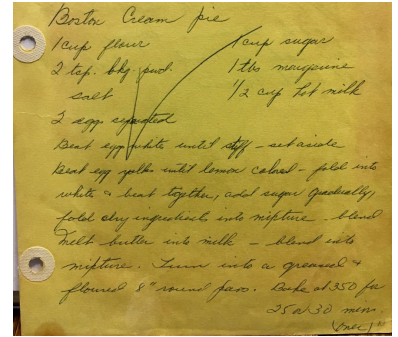 Boston Cream pie
1 cup flour 1 cup sugar
2 tsp. bkg. pwd. 1 tbs margarine
salt 1/2 cup hot milk
2 eggs separated
Beat egg white until stiff - set aside
Beat egg yolks until lemon colored - fold into
white & beat together, add sugar gradually,
fold dry ingredients into mixture - blend
melt butter into milk - blend into
mixture. Turn into a greased &
floured 8" round pan. Bake at 350 for
25 or 30 mins.